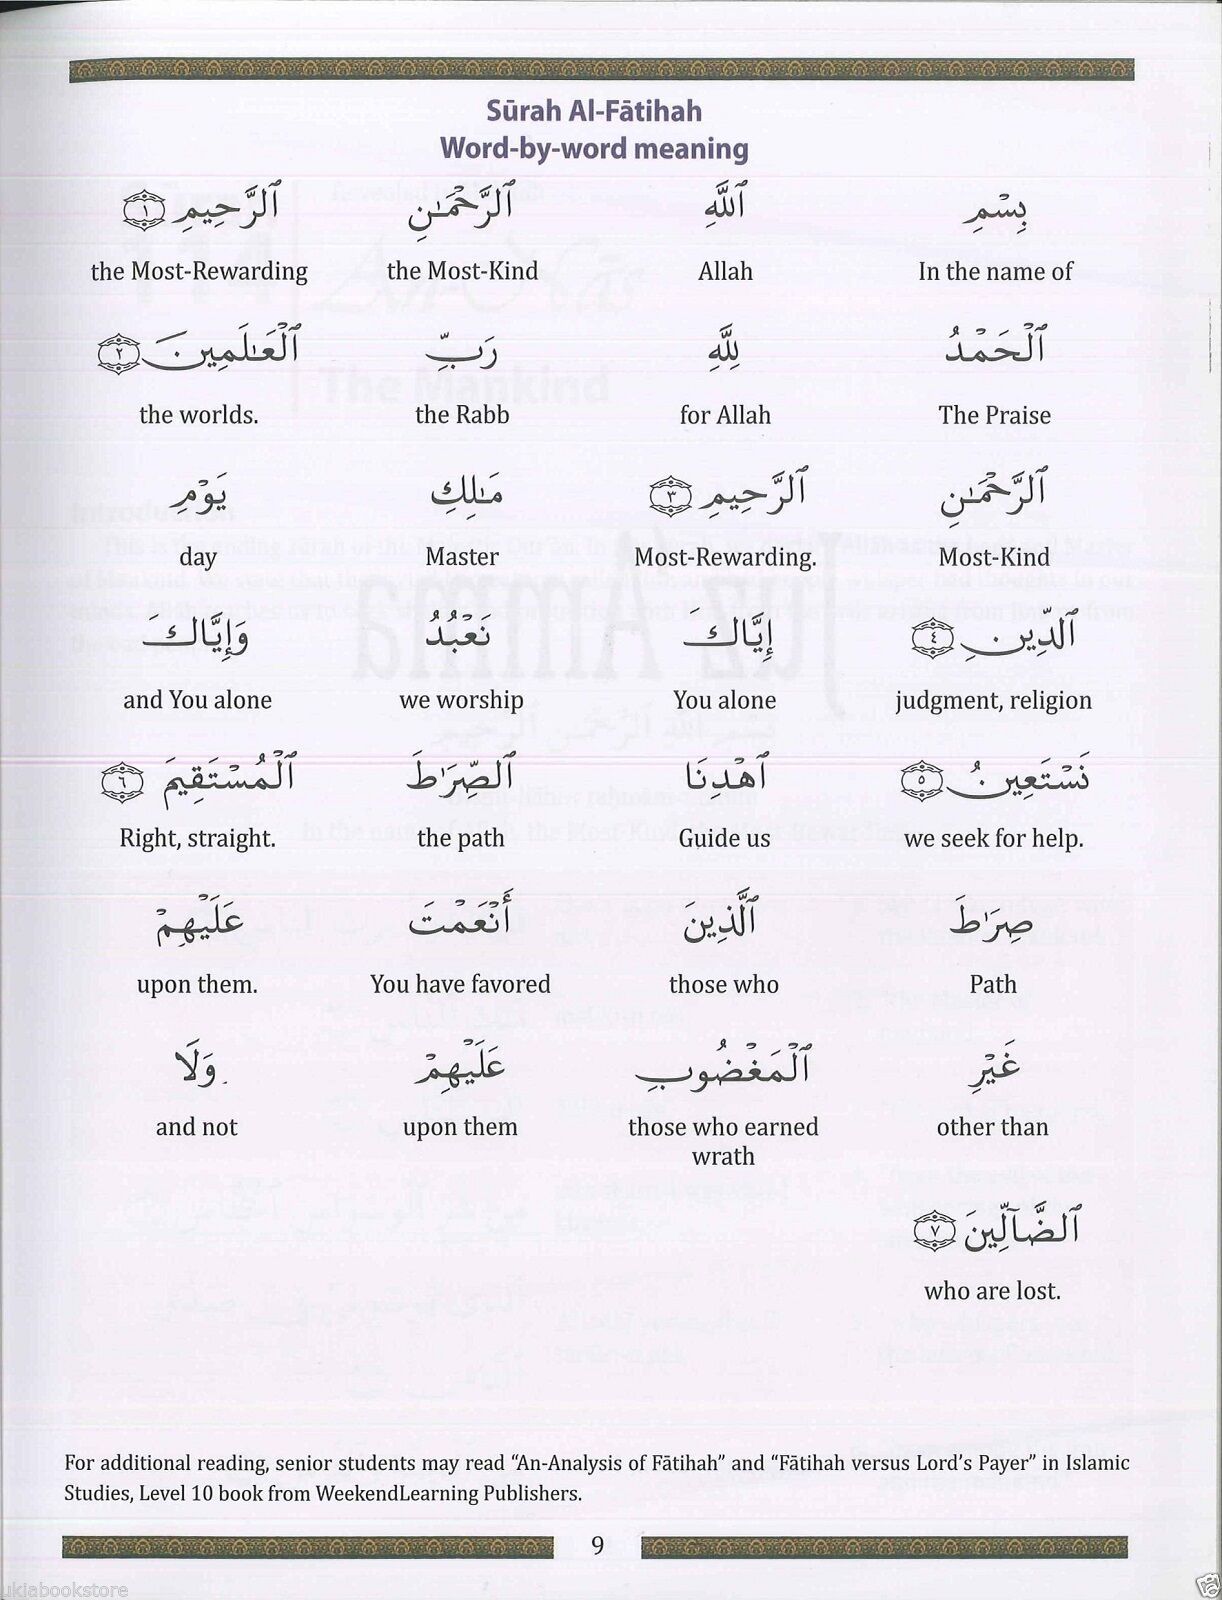 Sūrah Al-Fātihah
Word-by-word meaning
بِسْمِ ٱللَّهِ ٱلرَّحْمَـٰنِ ٱلرَّحِيمِ ١
In the name of Allah the Most-Kind the Most-Rewarding
ٱلْحَمْدُ لِلَّهِ رَبِّ ٱلْعَـٰلَمِينَ ٢
The Praise for Allah the Rabb the worlds.
ٱلرَّحْمَـٰنِ ٱلرَّحِيمِ ٣ مَـٰلِكِ يَوْمِ
Most-Kind Most-Rewarding. Master day
ٱلدِّينِ ٤ إِيَّاكَ نَعْبُدُ وَإِيَّاكَ
judgment, religion You alone we worship and You alone
نَسْتَعِينُ ٥ ٱهْدِنَا ٱلصِّرَٰطَ ٱلْمُسْتَقِيمَ ٦
we seek for help. Guide us the path Right, straight.
صِرَٰطَ ٱلَّذِينَ أَنْعَمْتَ عَلَيْهِمْ
Path those who You have favored upon them.
غَيْرِ ٱلْمَغْضُوبِ عَلَيْهِمْ وَلَا
other than those who earned upon them and not
wrath
ٱلضَّآلِّينَ ٧
who are lost.
For additional reading, senior students may read “An-Analysis of Fātihah” and “Fātihah versus Lord’s Payer” in Islamic
Studies, Level 10 book from WeekendLearning Publishers.
9
ukiabookstore